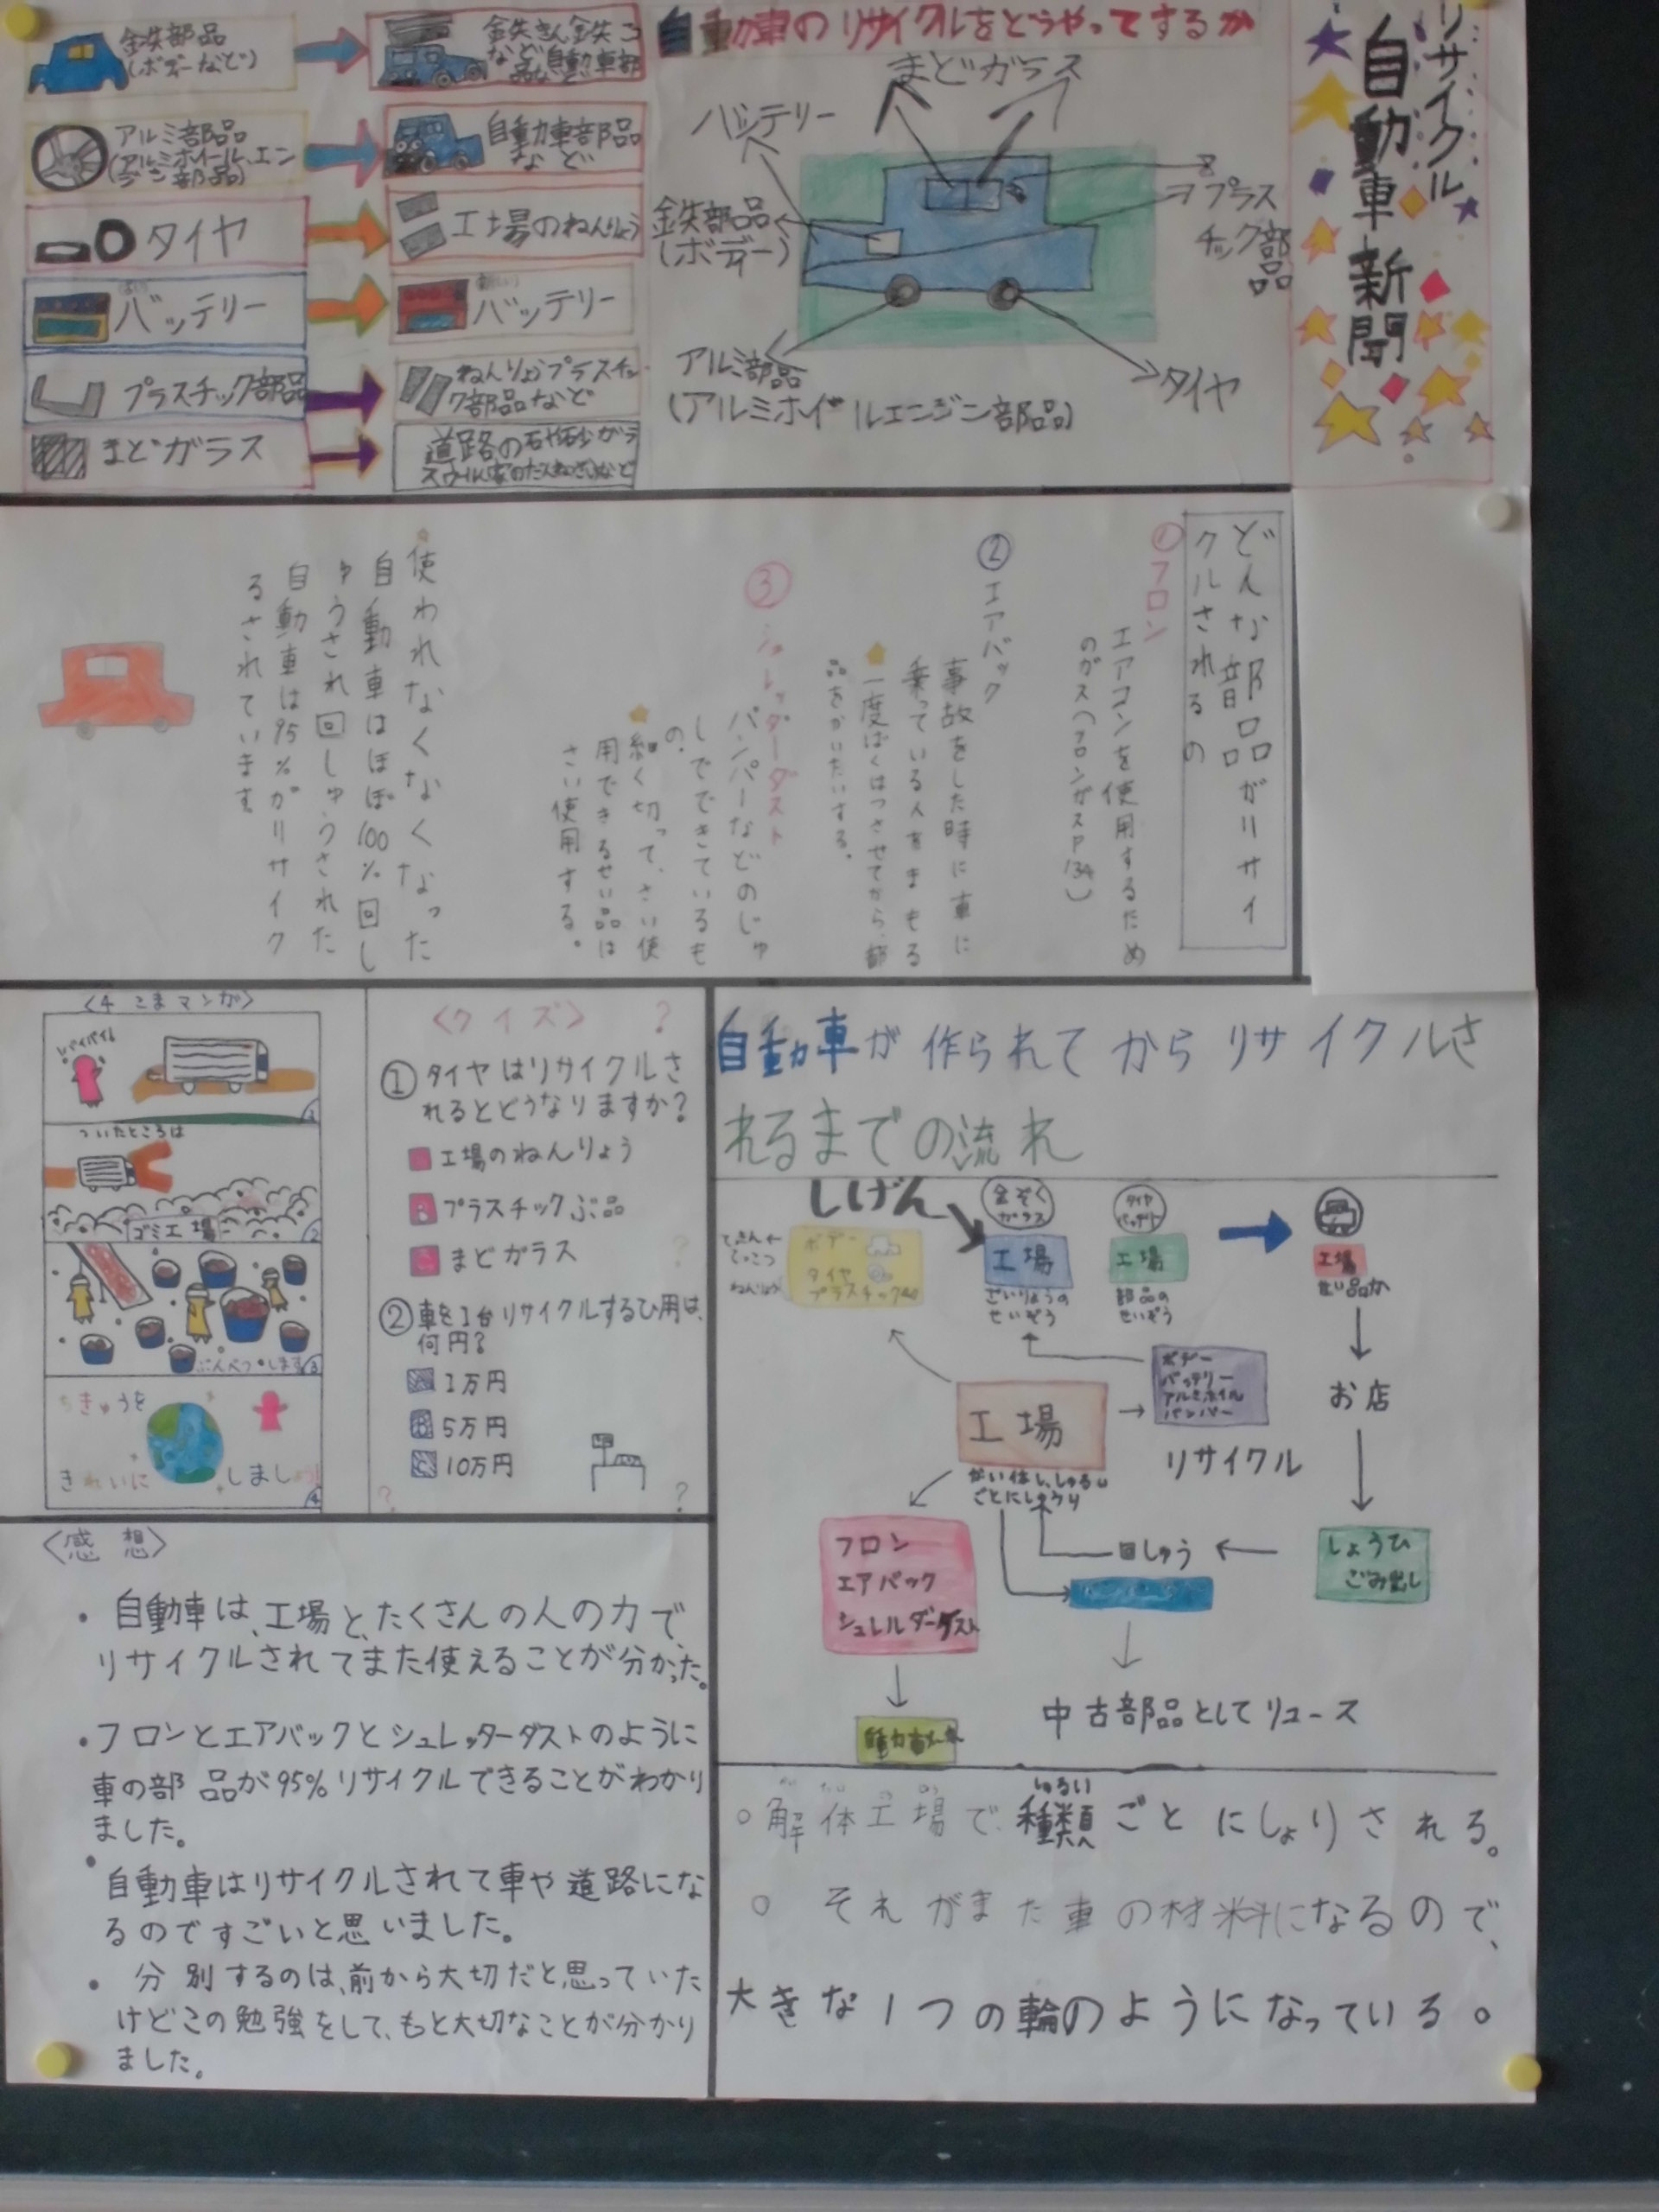 リサイクル
自動車新聞
自動車のリサイクルをどうやってするか
まどガラス
バッテリー
鉄部品
(ボディー)
プラス
チック部
品
アルミ部品
(アルミホイールエンジン部品)
タイヤ
鉄部品
(ボディーなど)
など自動車部
アルミ部品
(アルミホイール、エン
ジン部品)
自動車部品
など
タイヤ
工場のねんりょう
バッテリー
バッテリー
プラスチック部品
ねんりょうプラスチッ
ク部品など
まどガラス
どんな部品がリサイ
クルされるの
①フロン
エアコンを使用するため
のガス(フロンガスP134)
②エアバック
事故をした時に車に
乗っている人をまもる
一度ばくはつさせてから、部
品をかいたいする。
③シュレッダーダスト
バンパーなどのじゅ
しでできているも
の。
細く切って、さい使
用できるせい品は
さい使用する。
使われなくなくなった
自動車はほぼ100%回し
ゅうされ回しゅうされた
自動車は95%がリサイク
るされています
〈4こまマンガ〉
バイバイ
ついたところは
ゴミ工場
ぶんべつします
ちきゅうを
きれいにしましょう
〈クイズ〉
①タイヤはリサイクルさ
れるとどうなりますか?
工場のねんりょう
プラスチックぶ品
まどガラス
②車を1台リサイクルするひ用は、
何円?
A 1万円
B 5万円
C 10万円
自動車が作られてからリサイクルさ
れるまでの流れ
しげん
金ぞく
ガラス
タイヤ
バッテリー
ボデー
タイヤ
プラスチック
ねんりょう
工場
ざいりょうの
せいぞう
工場
部品の
せいぞう
工場
せい品か
お店
しょうひ
ごみ出し
回しゅう
工場
かい体し、しゅるい
ごとにしょり
ボデー
バッテリー
アルミホイル
バンパー
リサイクル
フロン
エアバック
シュレルダーダスト
中古部品としてリユース
〈感想〉
・自動車は、工場と、たくさんの人の力で
リサイクルされてまた使えることが分かった。
・フロンとエアバックとシュレッターダストのように
車の部品が95%リサイクルできることがわかり
ました。
・自動車はリサイクルされて車や道路にな
るのですごいと思いました。
・分別するのは、前から大切だと思っていた
けどこの勉強をして、もと大切なことが分かり
ました。
○解体工場で種類ごとにしょりされる。
○それがまた車の材料になるので、
大きな1つの輪のようになっている。